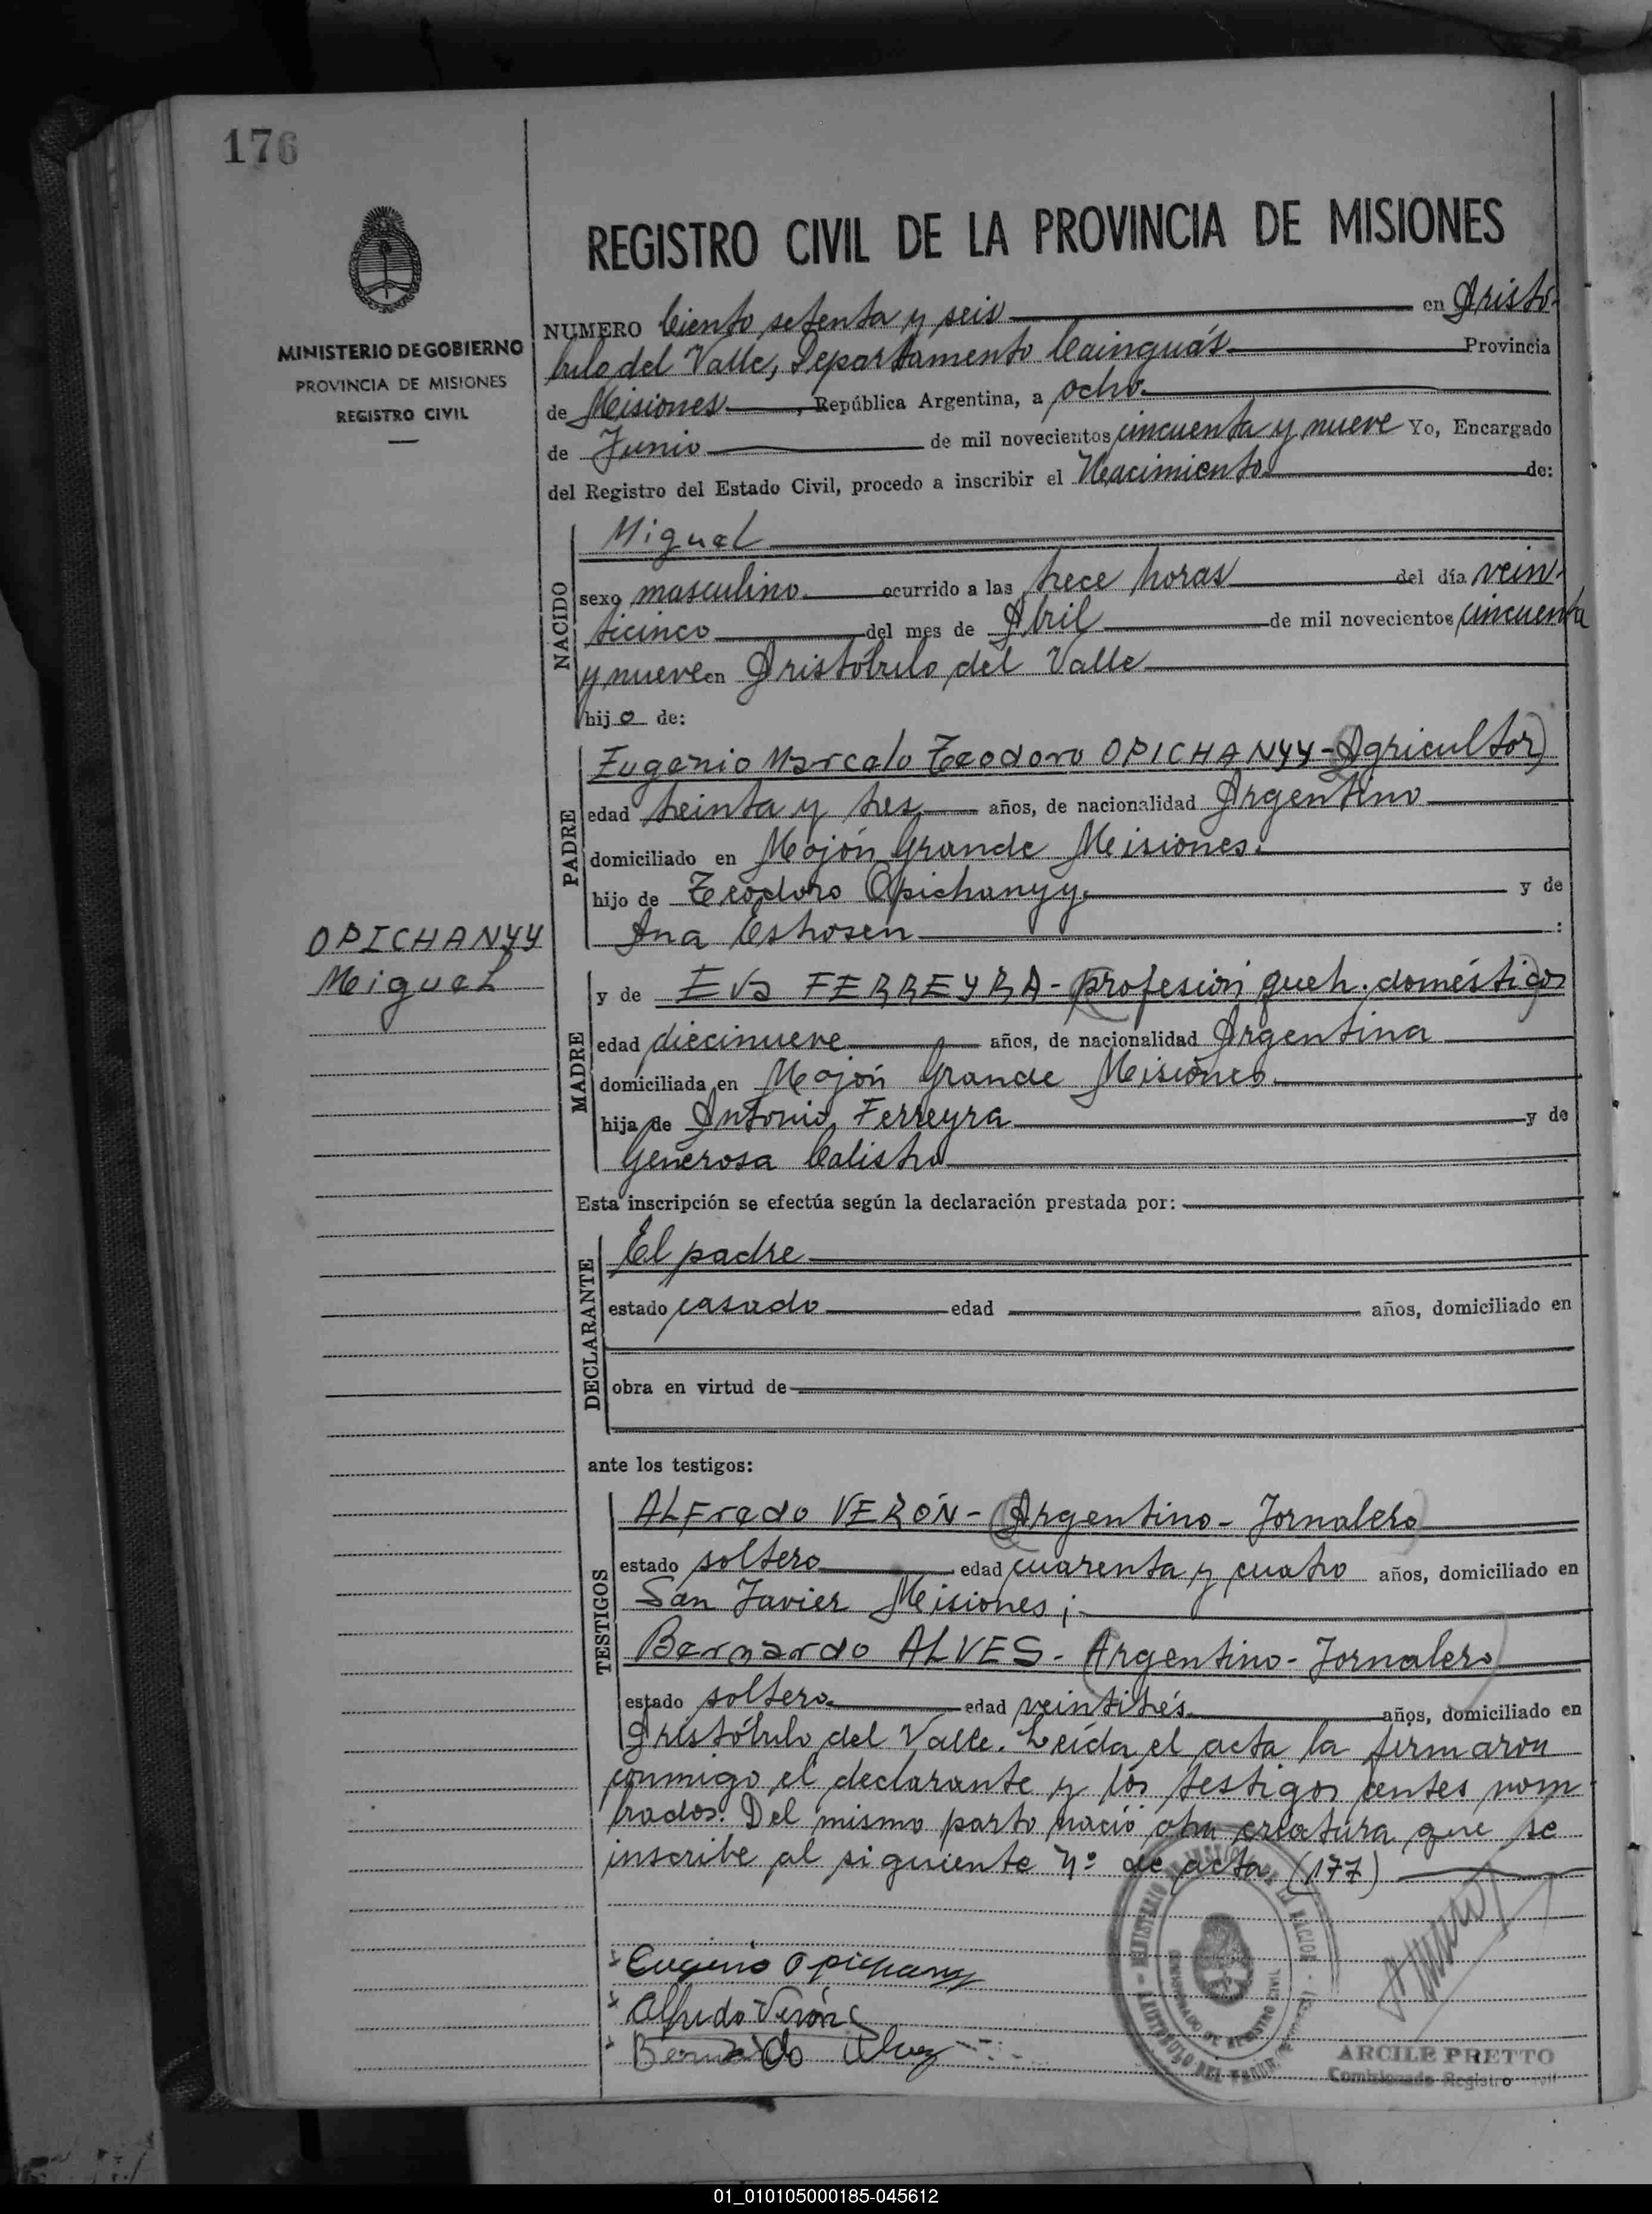 176
MINISTERIO DE GOBIERNO
PROVINCIA DE MISIONES
REGISTRO CIVIL
REGISTRO CIVIL DE LA PROVINCIA DE MISIONES
NUMERO Ciento setenta y seis en Aristó-
bulo del Valle, Departamento Cainguás Provincia
de Misiones, República Argentina, a ocho
de Junio de mil novecientos cincuenta y nueve Yo, Encargado
del Registro del Estado Civil, procedo a inscribir el Nacimiento de:
NACIDO
Miguel
sexo masculino ocurrido a las trece horas del día vein-
ticinco del mes de Abril de mil novecientos cincuenta
y nueve en Aristóbulo del Valle
hijo de:
PADRE
Eugenio Marcelo Teodoro OPICHANYY - (Agricultor)
edad treinta y tres años, de nacionalidad Argentino
domiciliado en Mojón Grande Misiones.
hijo de Teodoro Opichanyy. y de
Ana Eshosen :
OPICHANYY
Miguel
MADRE
y de Eva FERREYRA - (profesión queh. domésticos)
edad diecinueve años, de nacionalidad Argentina
domiciliada en Mojón Grande Misiones.
hija de Antonio Ferreyra y de
Generosa Calistro
Esta inscripción se efectúa según la declaración prestada por:
DECLARANTE
El padre
estado casado edad años, domiciliado en
obra en virtud de
ante los testigos:
TESTIGOS
ALFredo VERÓN - (Argentino - Jornalero)
estado soltero edad cuarenta y cuatro años, domiciliado en
San Javier Misiones;
Bernardo ALVES - (Argentino - Jornalero)
estado soltero edad veintitrés años, domiciliado en
Aristóbulo del Valle. Leída el acta la firmaron
conmigo el declarante y los testigos antes nom
brados. Del mismo parto nació otra creatura que se
inscribe al siguiente Nº de acta (177)
Eugenio Opichany
Alfredo Verón
Bernardo Alvez
ARCILE PRETTO
Comisionado Registro Civil
01_010105000185-045612